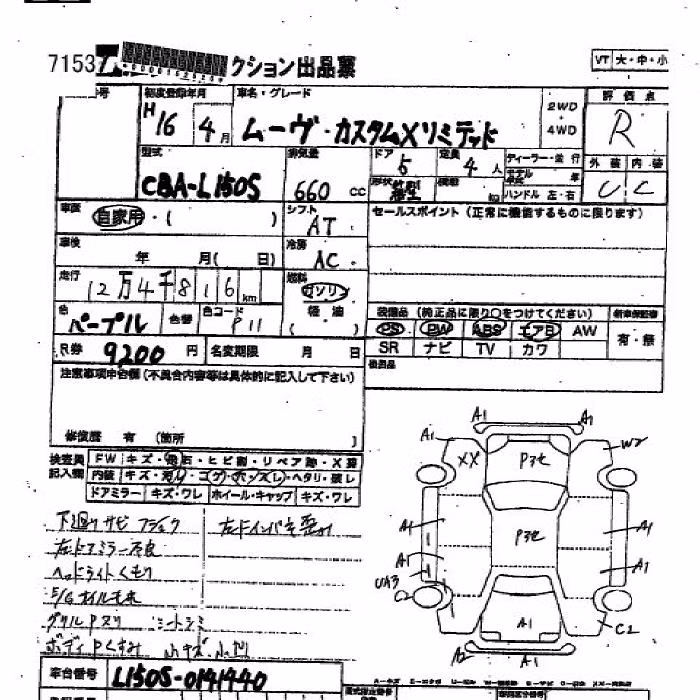 7153 クション出品票
VT 大・中・小
号 初度登録年月 車名・グレード 評価点
H16 4月 ムーヴ・カスタムXリミテッド 2WD・4WD R
型式 排気量 ドア 定員 ディーラー・並行 外装 内装
CBA-L150S 660cc 5 4人 モデル 年 C
形状 kg ハンドル 左・右
車歴 自家用・( ) シフト AT セールスポイント (正常に機能するものに限ります)
車検 年 月( 日) 冷房 AC
走行 12万4千816km 燃料 ガソリン 軽油 ( )
色 パープル 色替 色コード P11
装備品 (純正品に限り○をつけてください) 新車保証書
PS PW ABS エアB AW 有・無
SR ナビ TV カワ
R券 9200円 名変期限 月 日
後装品
注意事項申告欄 (不具合内容等は具体的に記入して下さい)
修復歴 有 (箇所 )
検査員記入欄 FW キズ・飛石・ヒビ割・リペア跡・X要
内装 キズ・ヨゴレ・コゲ・穴・スレ・ヘタリ・破レ
ドアミラー キズ・ワレ ホイール・キャップ キズ・ワレ
下廻りサビ フショク 左ドインパネ歪み
左ドアミラー不良
ヘッドライトくもり
E/Gオイルモレ
グリルPスリ シートシミ
ボディPくすみ 小キズ 小凹
車台番号 L150S-0141440
A1 A1 A1
A1 XX P3セ W2
A1 P3セ A1
A1 A1
UA3
C2
A1
A2 A1